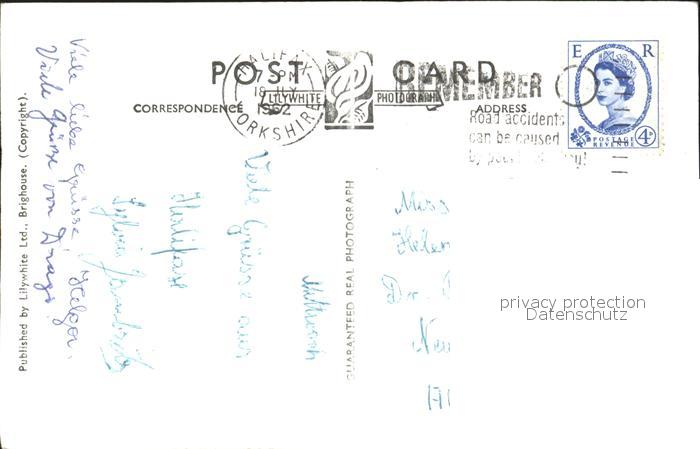 POST CARD
CORRESPONDENCE
LILYWHITE
PHOTOGRAPH
ADDRESS
HALIFAX
7 PM
18 JLY
1962
YORKSHIRE
REMEMBER
Road accidents
can be caused
by
E R
POSTAGE
REVENUE
4D
Published by Lilywhite Ltd., Brighouse. (Copyright).
GUARANTEED REAL PHOTOGRAPH
Viele liebe Grüsse Helga.
Viele Grüsse von
Mittwoch
Viele Grüsse aus
Sylvia
Miss
Helen
privacy protection
Datenschutz